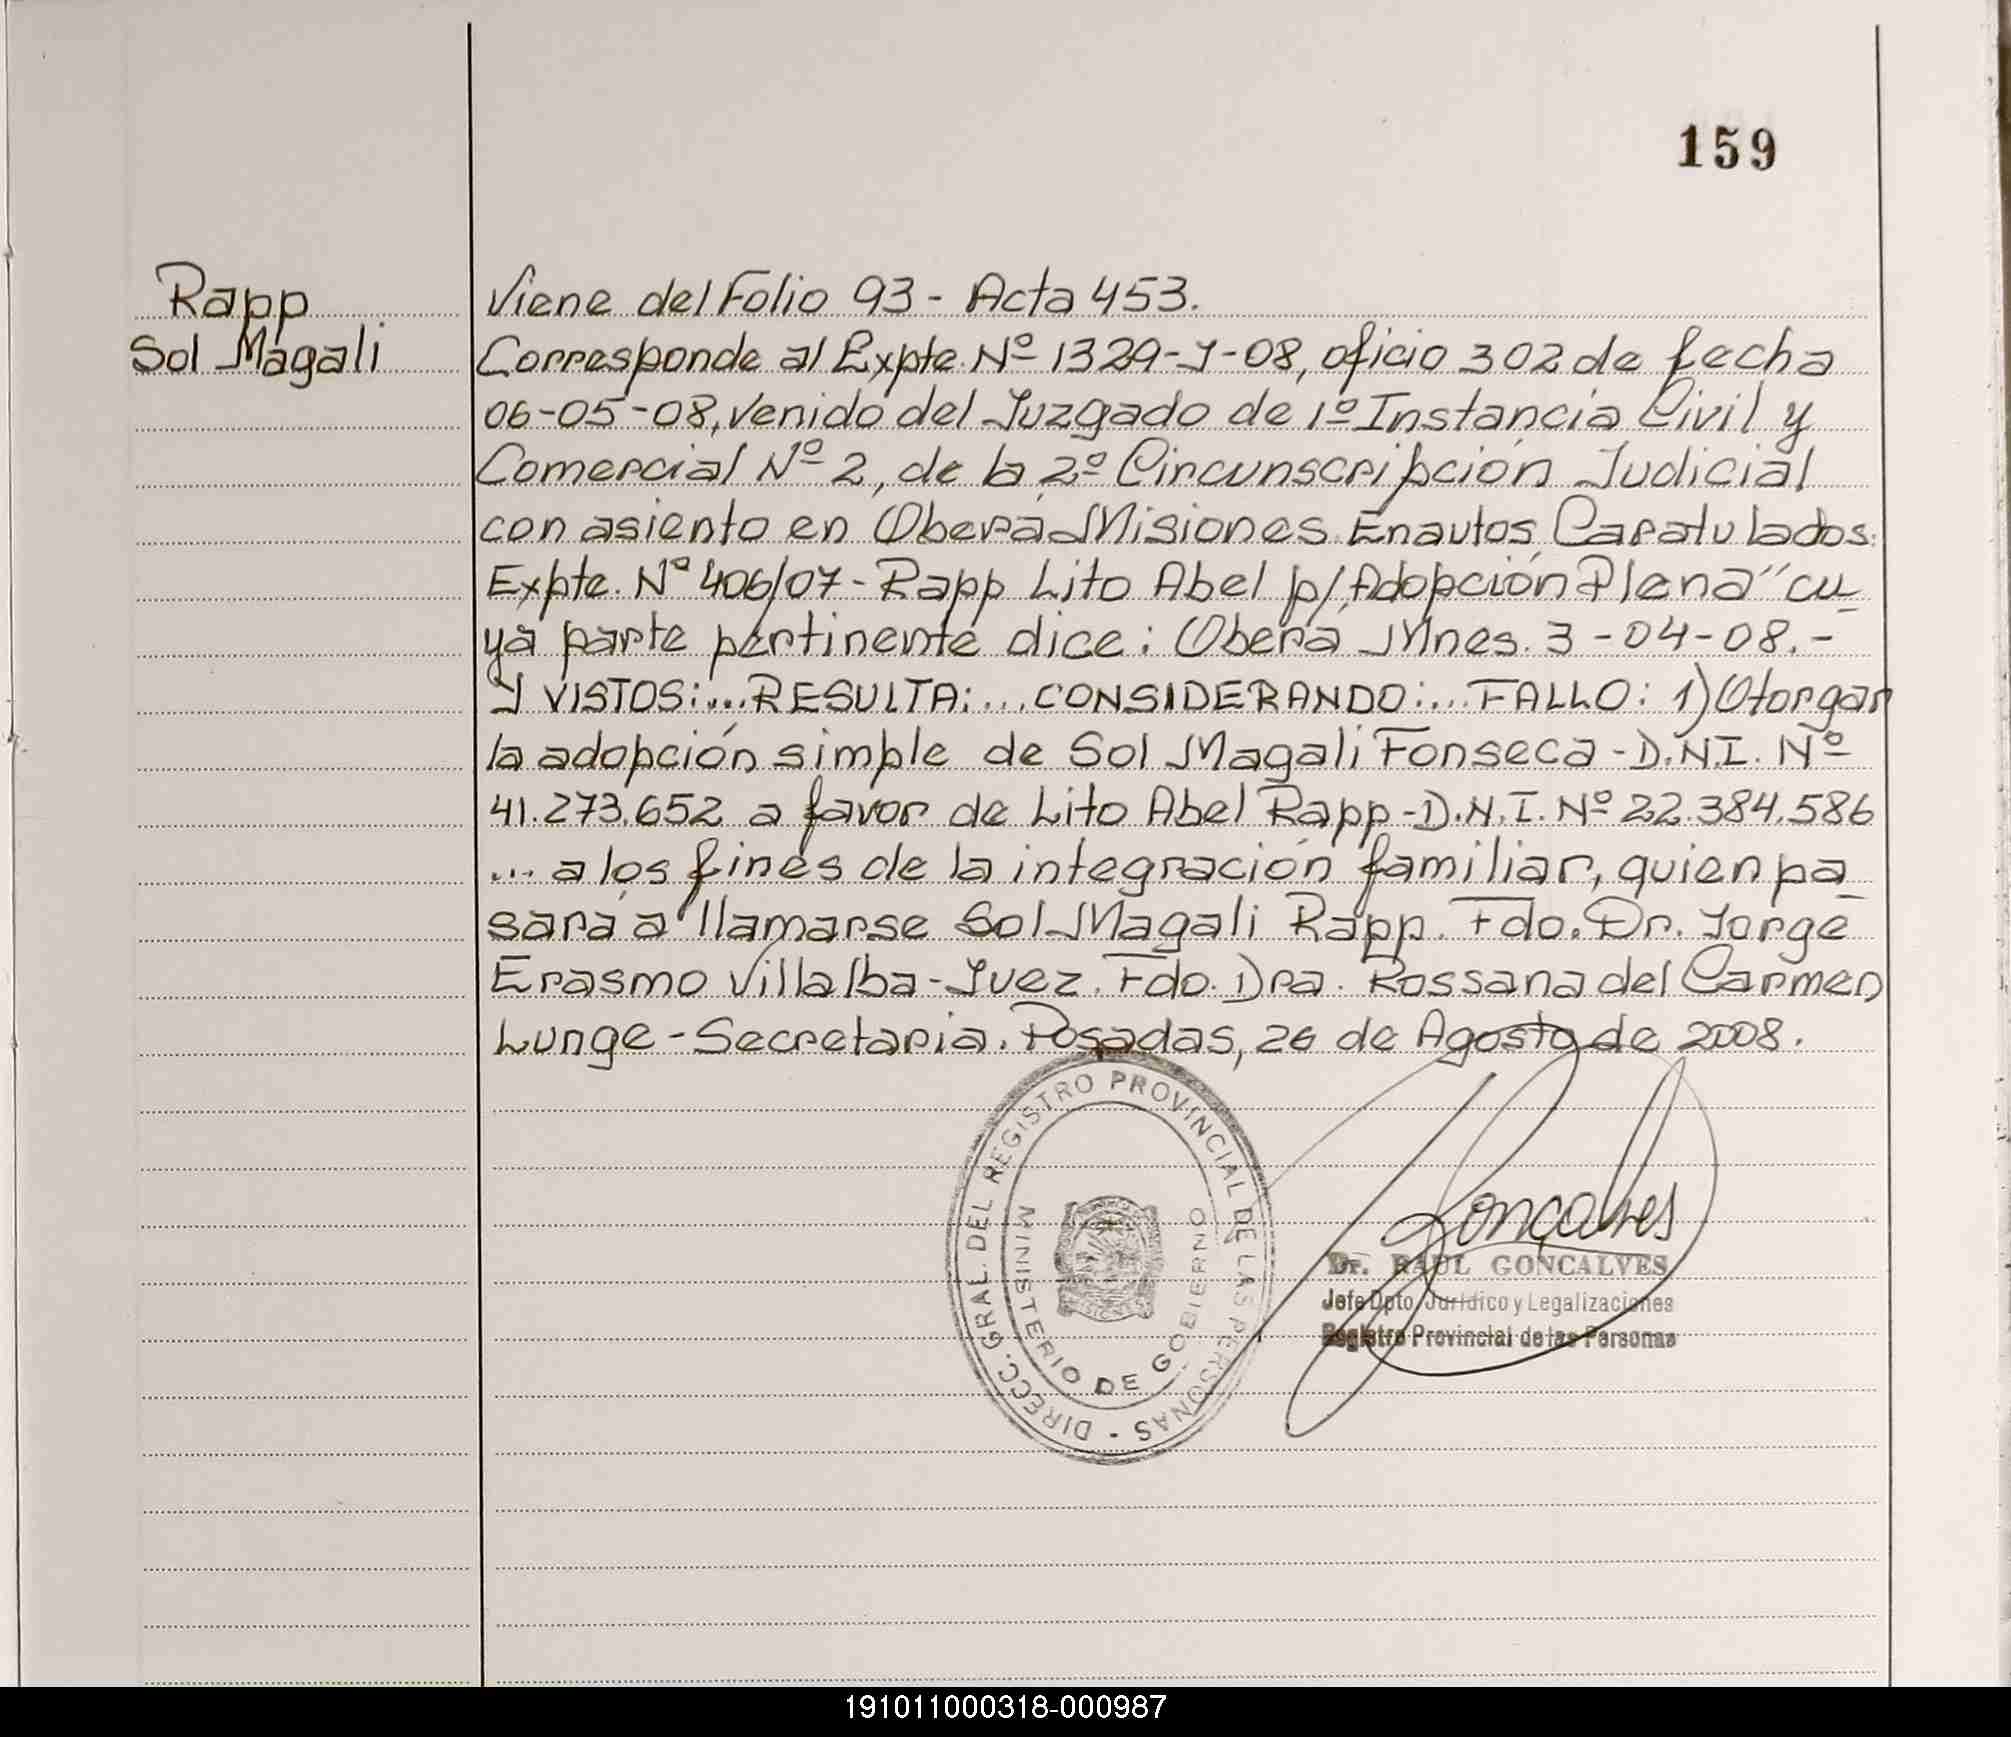 159
Rapp
Sol Magali
Viene del Folio 93 - Acta 453.
Corresponde al Expte. Nº 1329-J-08, oficio 302 de fecha
06-05-08, venido del Juzgado de 1º Instancia Civil y
Comercial Nº 2, de la 2º Circunscripción Judicial
con asiento en Oberá Misiones. En autos Caratulados:
Expte. Nº 406/07 - Rapp Lito Abel p/Adopción Plena" cu_
ya parte pertinente dice: Oberá Mnes. 3-04-08.-
Y VISTOS:... RESULTA:... CONSIDERANDO:... FALLO: 1) Otorgar
la adopción simple de Sol Magali Fonseca - D.N.I. Nº
41.273.652 a favor de Lito Abel Rapp - D.N.I. Nº 22.384.586
... a los fines de la integración familiar, quien pa_
sará a llamarse Sol Magali Rapp. Fdo. Dr. Jorge
Erasmo Villalba - Juez. Fdo. Dra. Rossana del Carmen
Lunge - Secretaria. Posadas, 26 de Agosto de 2008.
DIRECC. GRAL. DEL REGISTRO PROVINCIAL DE LAS PERSONAS -
MINISTERIO DE GOBIERNO
Goncalves
Dr. RAUL GONCALVES
Jefe Dpto. Jurídico y Legalizaciones
Registro Provincial de las Personas
191011000318-000987